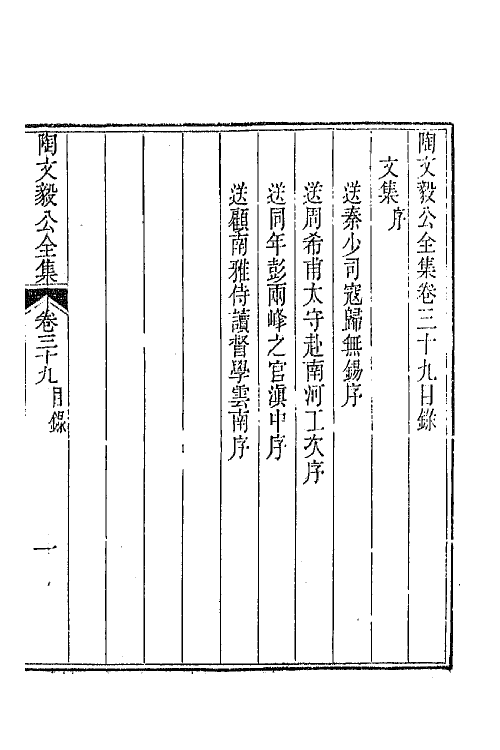 陶文毅公全集卷三十九目錄
文集序
送秦少司寇歸無錫序
送周希甫太守赴南河工次序
送同年彭兩峰之官滇中序
送顧南雅侍讀督學雲南序
陶文毅公全集
卷三十九目錄
一